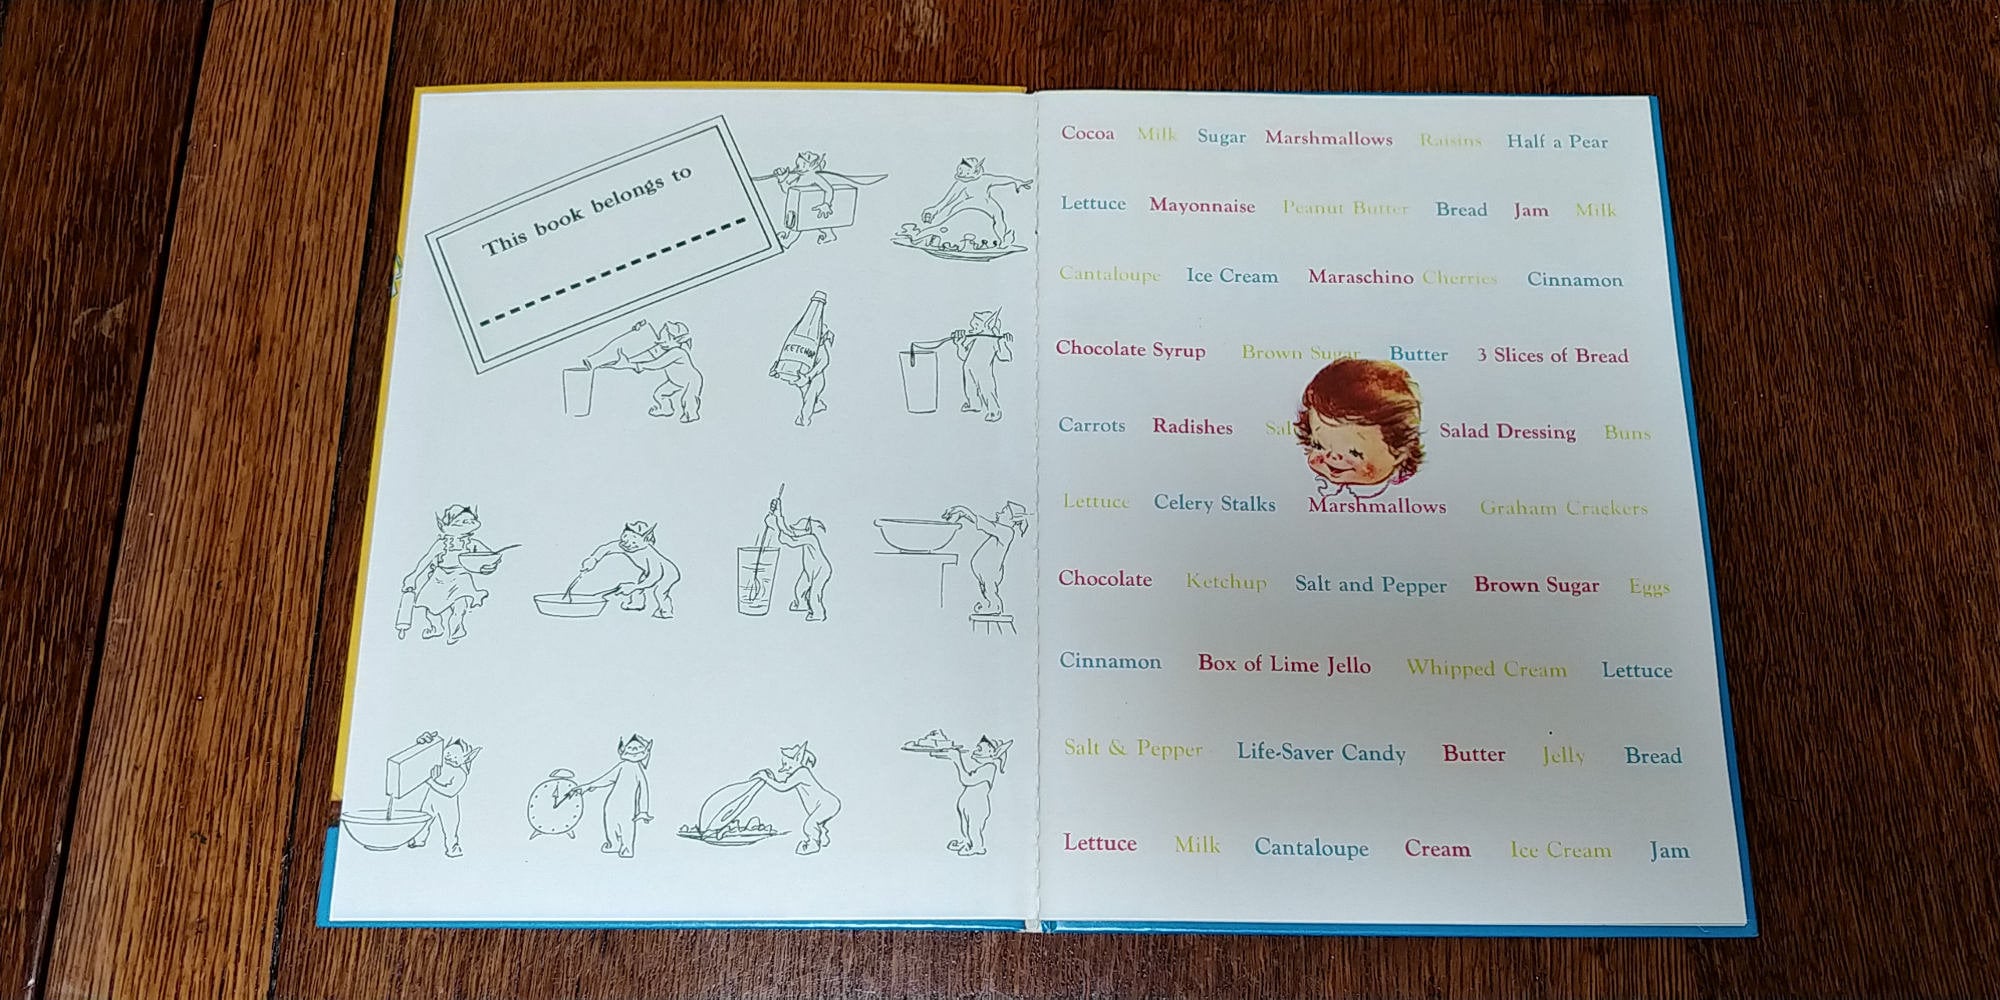 This book belongs to
KETCHUP
Cocoa Milk Sugar Marshmallows Raisins Half a Pear
Lettuce Mayonnaise Peanut Butter Bread Jam Milk
Cantaloupe Ice Cream Maraschino Cherries Cinnamon
Chocolate Syrup Brown Sugar Butter 3 Slices of Bread
Carrots Radishes Sal Salad Dressing Buns
Lettuce Celery Stalks Marshmallows Graham Crackers
Chocolate Ketchup Salt and Pepper Brown Sugar Eggs
Cinnamon Box of Lime Jello Whipped Cream Lettuce
Salt & Pepper Life-Saver Candy Butter Jelly Bread
Lettuce Milk Cantaloupe Cream Ice Cream Jam